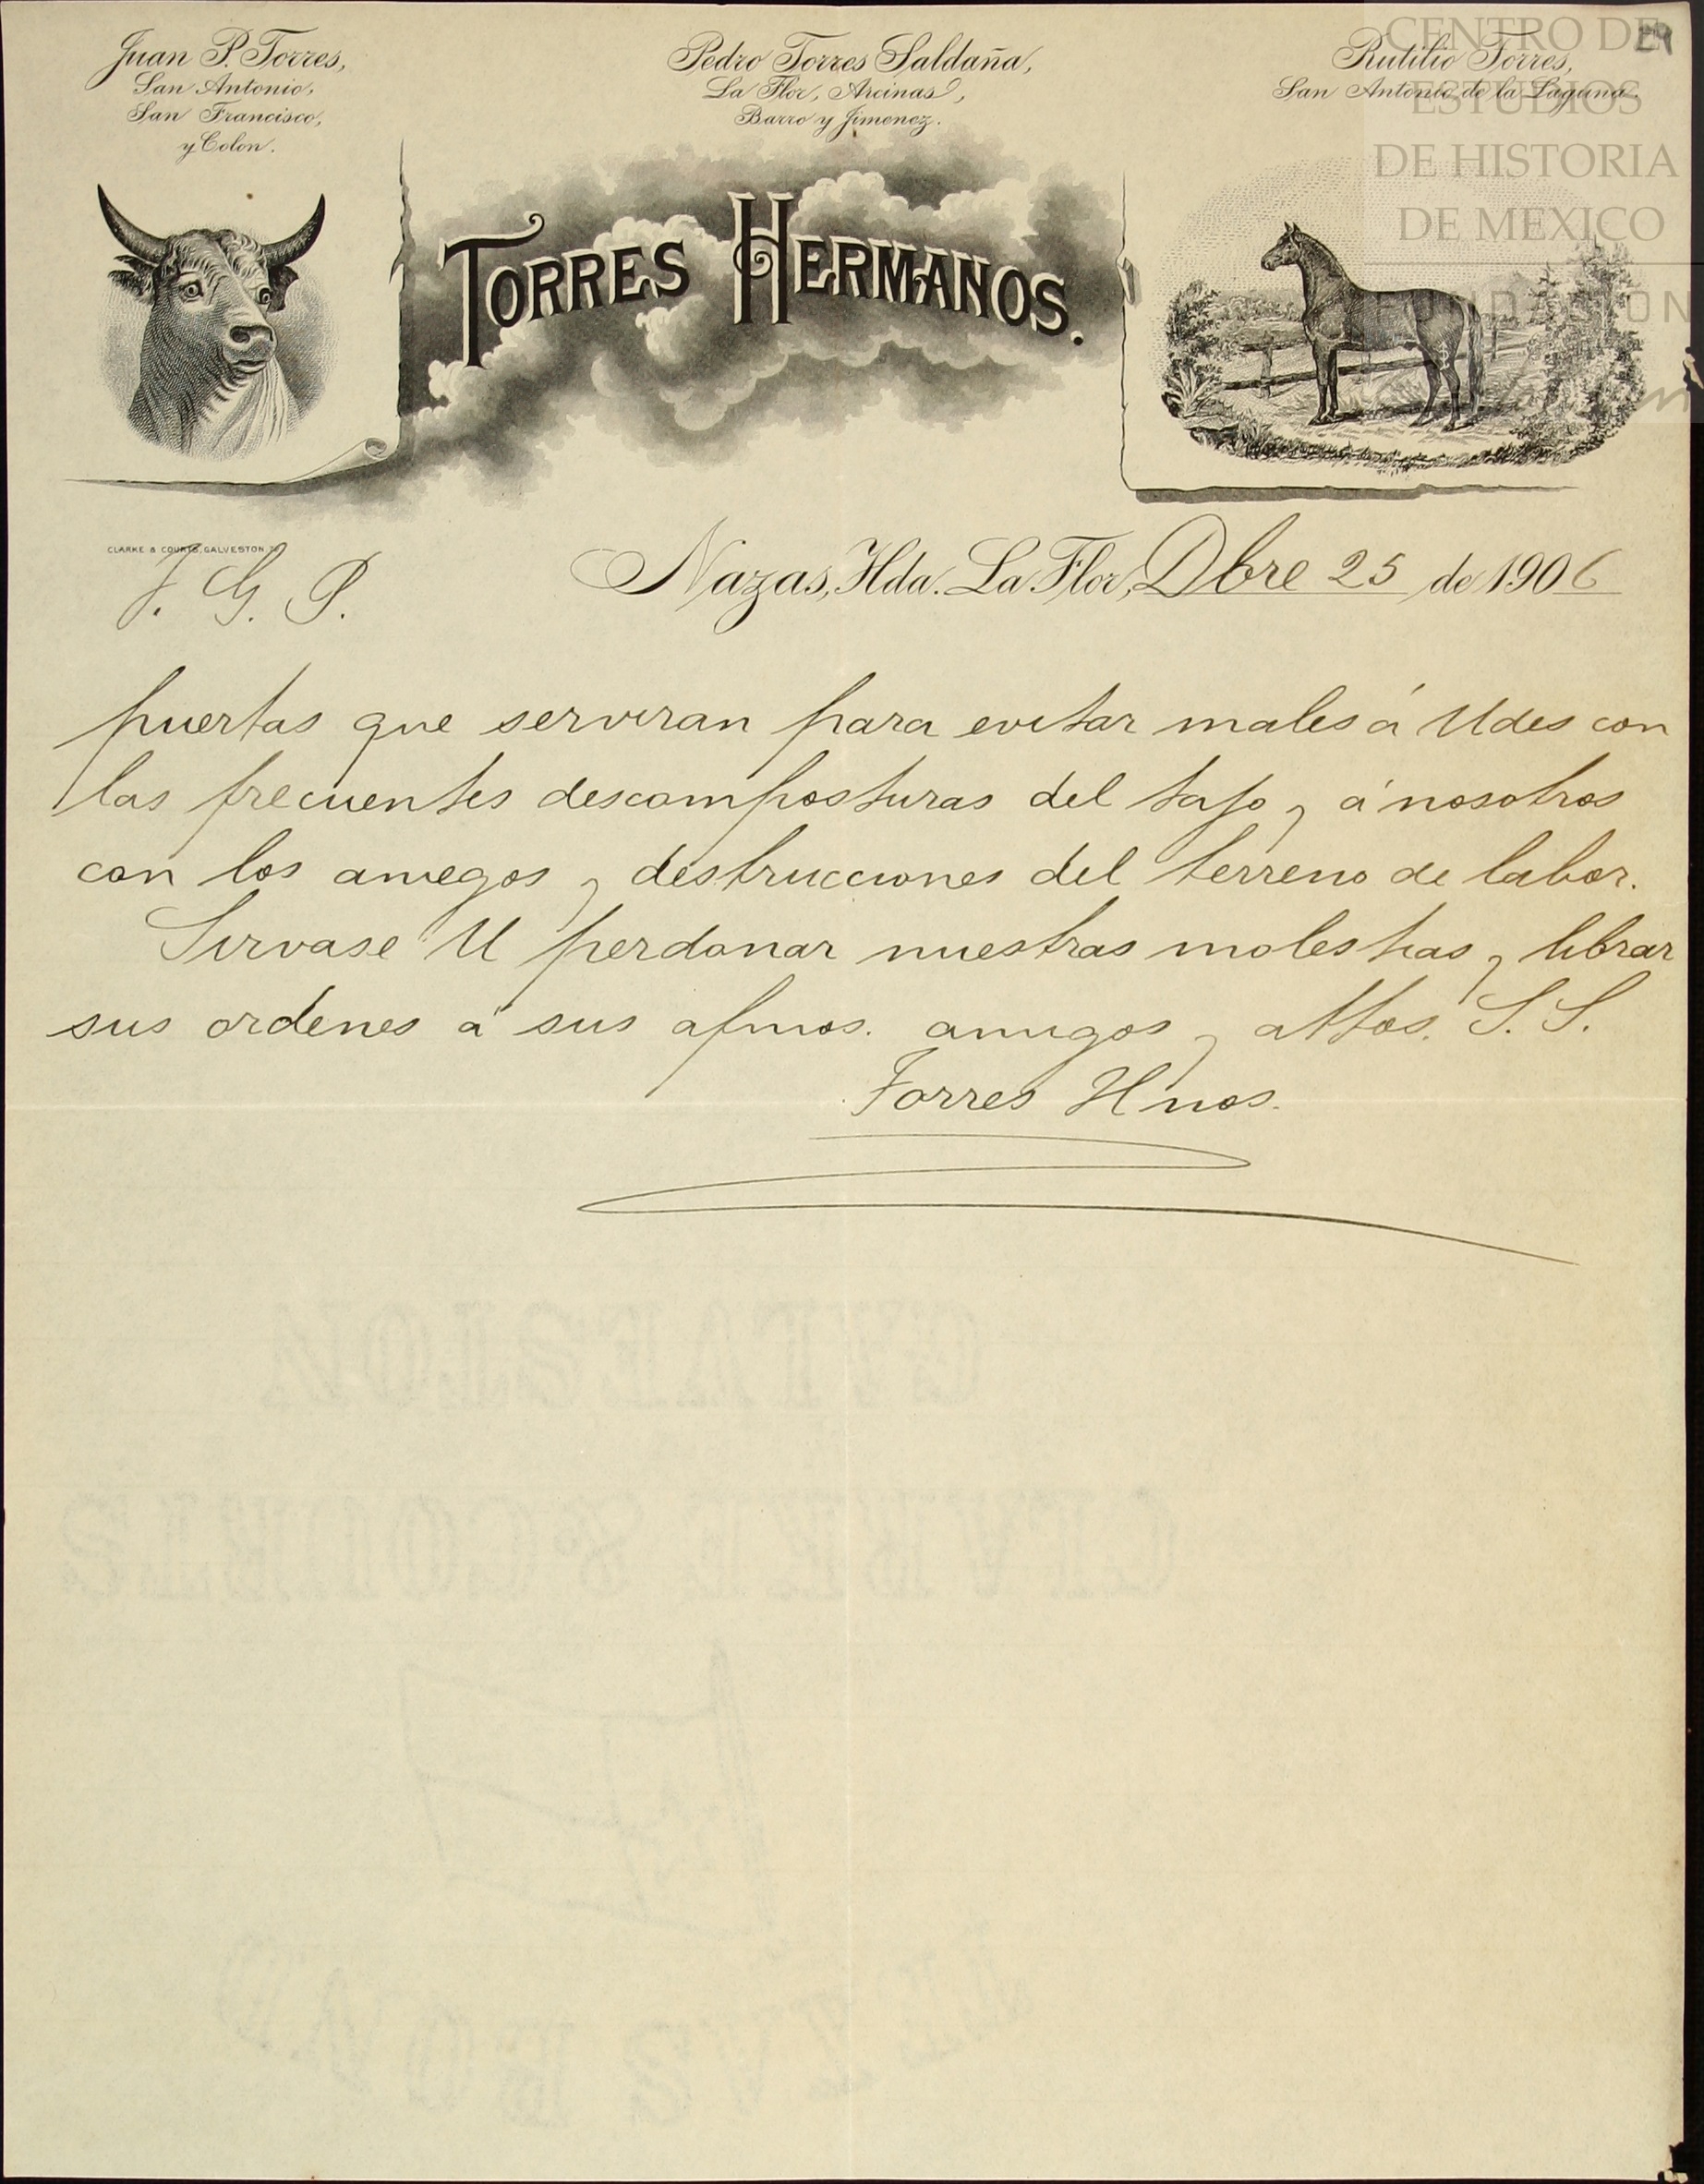 Juan P. Torres,
San Antonio,
San Francisco,
y Colon.
Pedro Torres Saldaña,
La Flor, Arcinas,
Barro y Jimenez.
Rutilio Torres,
San Antonio de la Laguna.
29
CENTRO DE
ESTUDIOS
DE HISTORIA
DE MEXICO
FUNDACION
TORRES HERMANOS.
CLARKE & COURTS, GALVESTON
Nazas, Hda. La Flor, Dbre 25 de 1906
J. G. P.
puertas que serviran para evitar males á Udes con
las frecuentes descomposturas del tajo y á nosotros
con los aniegos y destrucciones del terreno de labor.
Sirvase U perdonar nuestras molestias y librar
sus ordenes á sus afmos. amigos y attos. S. S.
Torres Hnos.